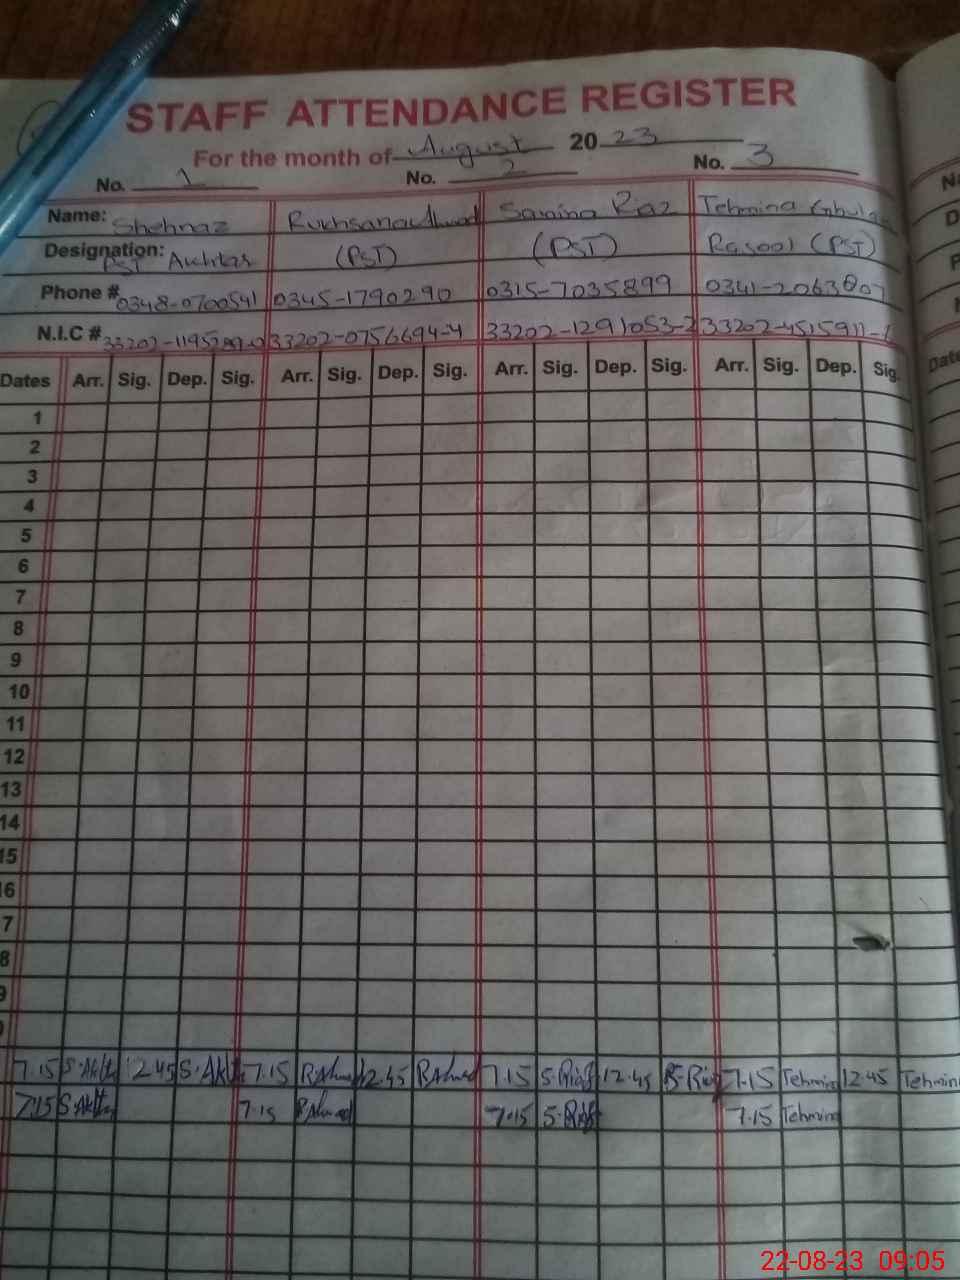 STAFF ATTENDANCE REGISTER
For the month of August 2023
No. 1 No. 2 No. 3
Name: Shehnaz Rukhsana Ahmad Samina Riaz Tehmina Ghulam
Designation: PST Akhtar (PST) (PST) Rasool (PST)
Phone # 0348-0700541 0345-1790290 0315-7035899 0341-2063807
N.I.C # 33202-1195289-0 33202-0756694-4 33202-1291053-2 33202-4515911-6
Dates Arr. Sig. Dep. Sig. Arr. Sig. Dep. Sig. Arr. Sig. Dep. Sig. Arr. Sig. Dep. Sig. Date
1
2
3
4
5
6
7
8
9
10
11
12
13
14
15
16
7
8
9
7.15 S.Akhtar 12.45 S.Akhtar 7.15 R.Ahmad 12.45 R.Ahmad 7.15 S.Riaz 12.45 S.Riaz 7.15 Tehmina 12.45 Tehmina
7.15 S.Akhtar 7.15 R.Ahmad 7.15 S.Riaz 7.15 Tehmina
22-08-23 09:05